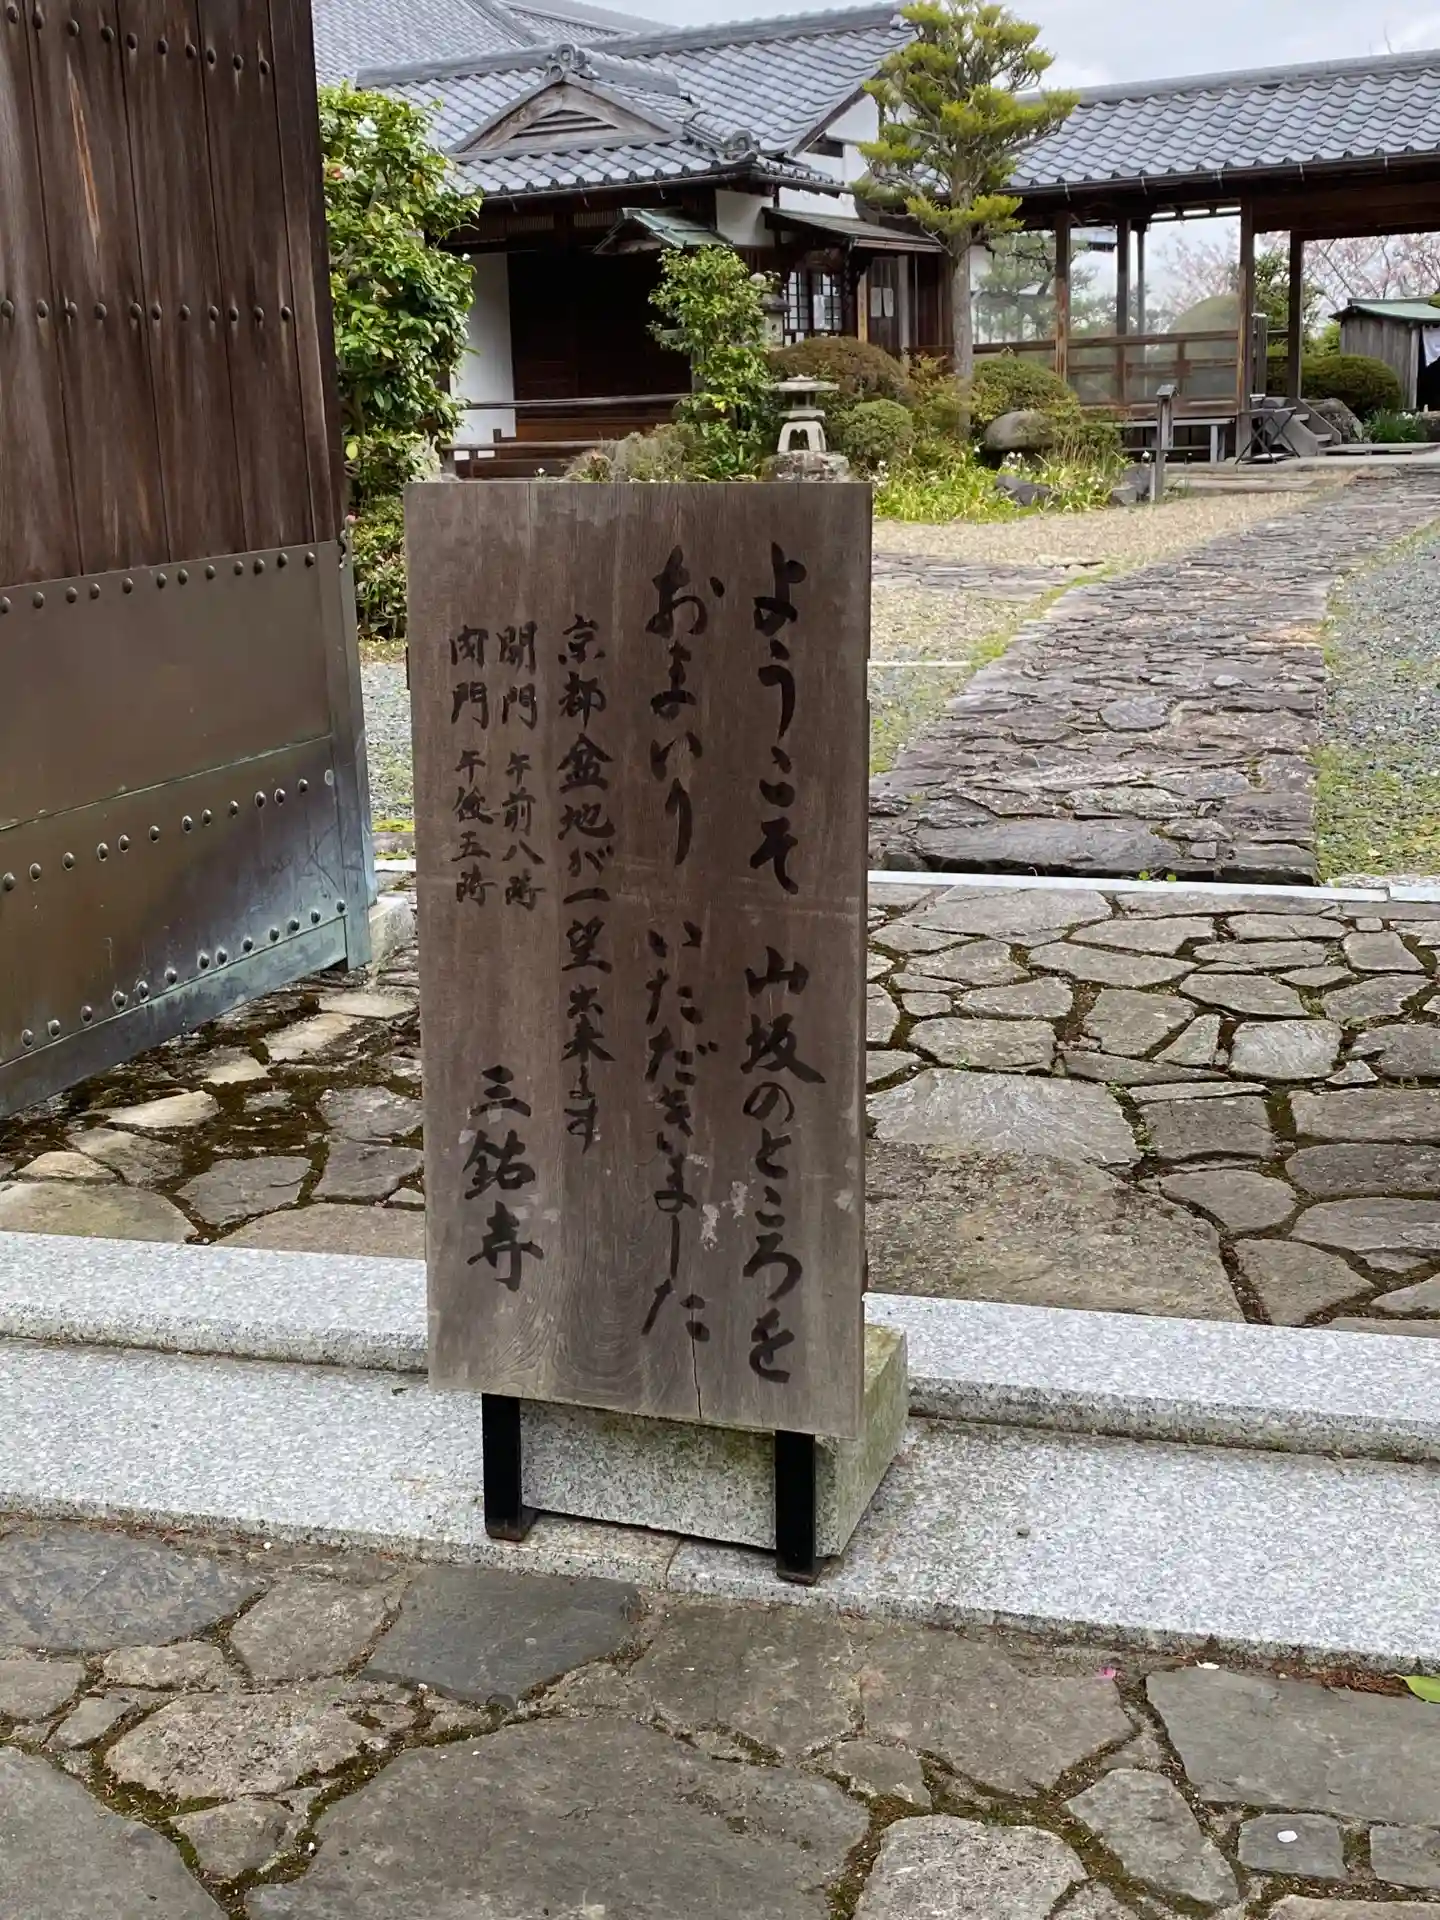 ようこそ 山坂のところを
おまいり いただきました
京都盆地が一望出来ます
開門 午前八時
闭門 午後五時
三鈷寺